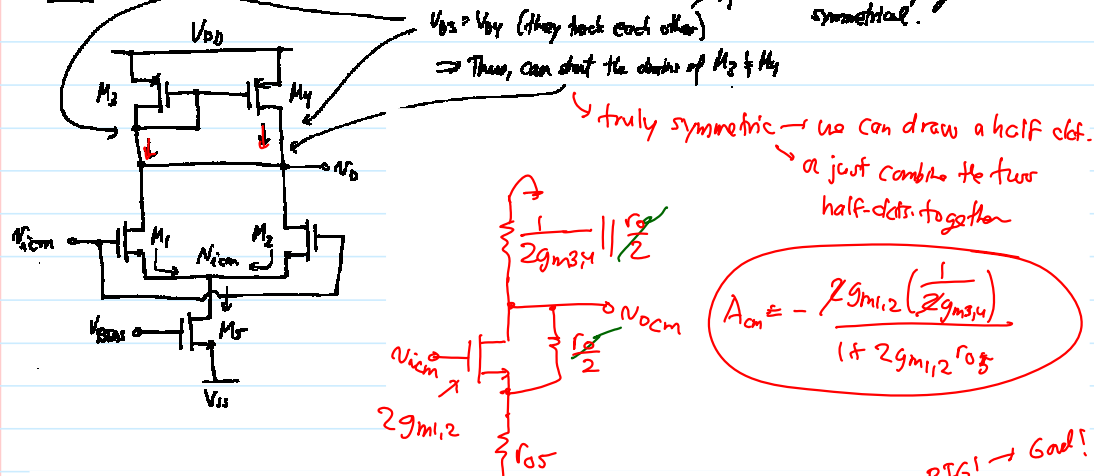 V_DS3 = V_DS4 (they track each other)
symmetrical.
⇒ Thus, can short the drains of M3 & M4
truly symmetric → we can draw a half ckt.
or just combine the two
half-ckts. together
V_DD
M3
M4
v_o
v_icm
M1
v_icm
M2
V_BIAS
M5
V_SS
1/(2g_m3,4) || r_o/2
v_ocm
r_o/2
v_icm
2g_m1,2
r_o5
A_cm ≅ - 2g_m1,2 (1/(2g_m3,4)) / (1 + 2g_m1,2 r_o5)
BIG! → Good!